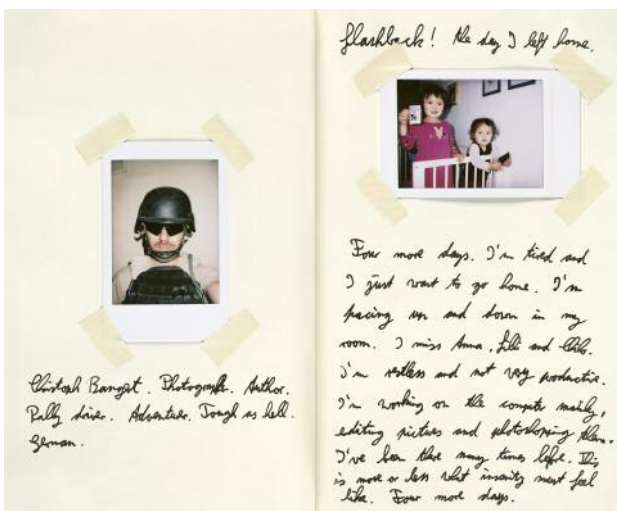 Christoph Bangert. Photographer. Author.
Rally driver. Adventurer. Tough as hell.
German.
flashback! the day I left home.
Four more days. I'm tired and
I just want to go home. I'm
pacing up and down in my
room. I miss Anna, Lili and
I'm restless and not very productive.
I'm working on the computer mainly,
editing pictures and photoshopping them.
I've been there many times before. This
is more or less what insanity must feel
like. Four more days.